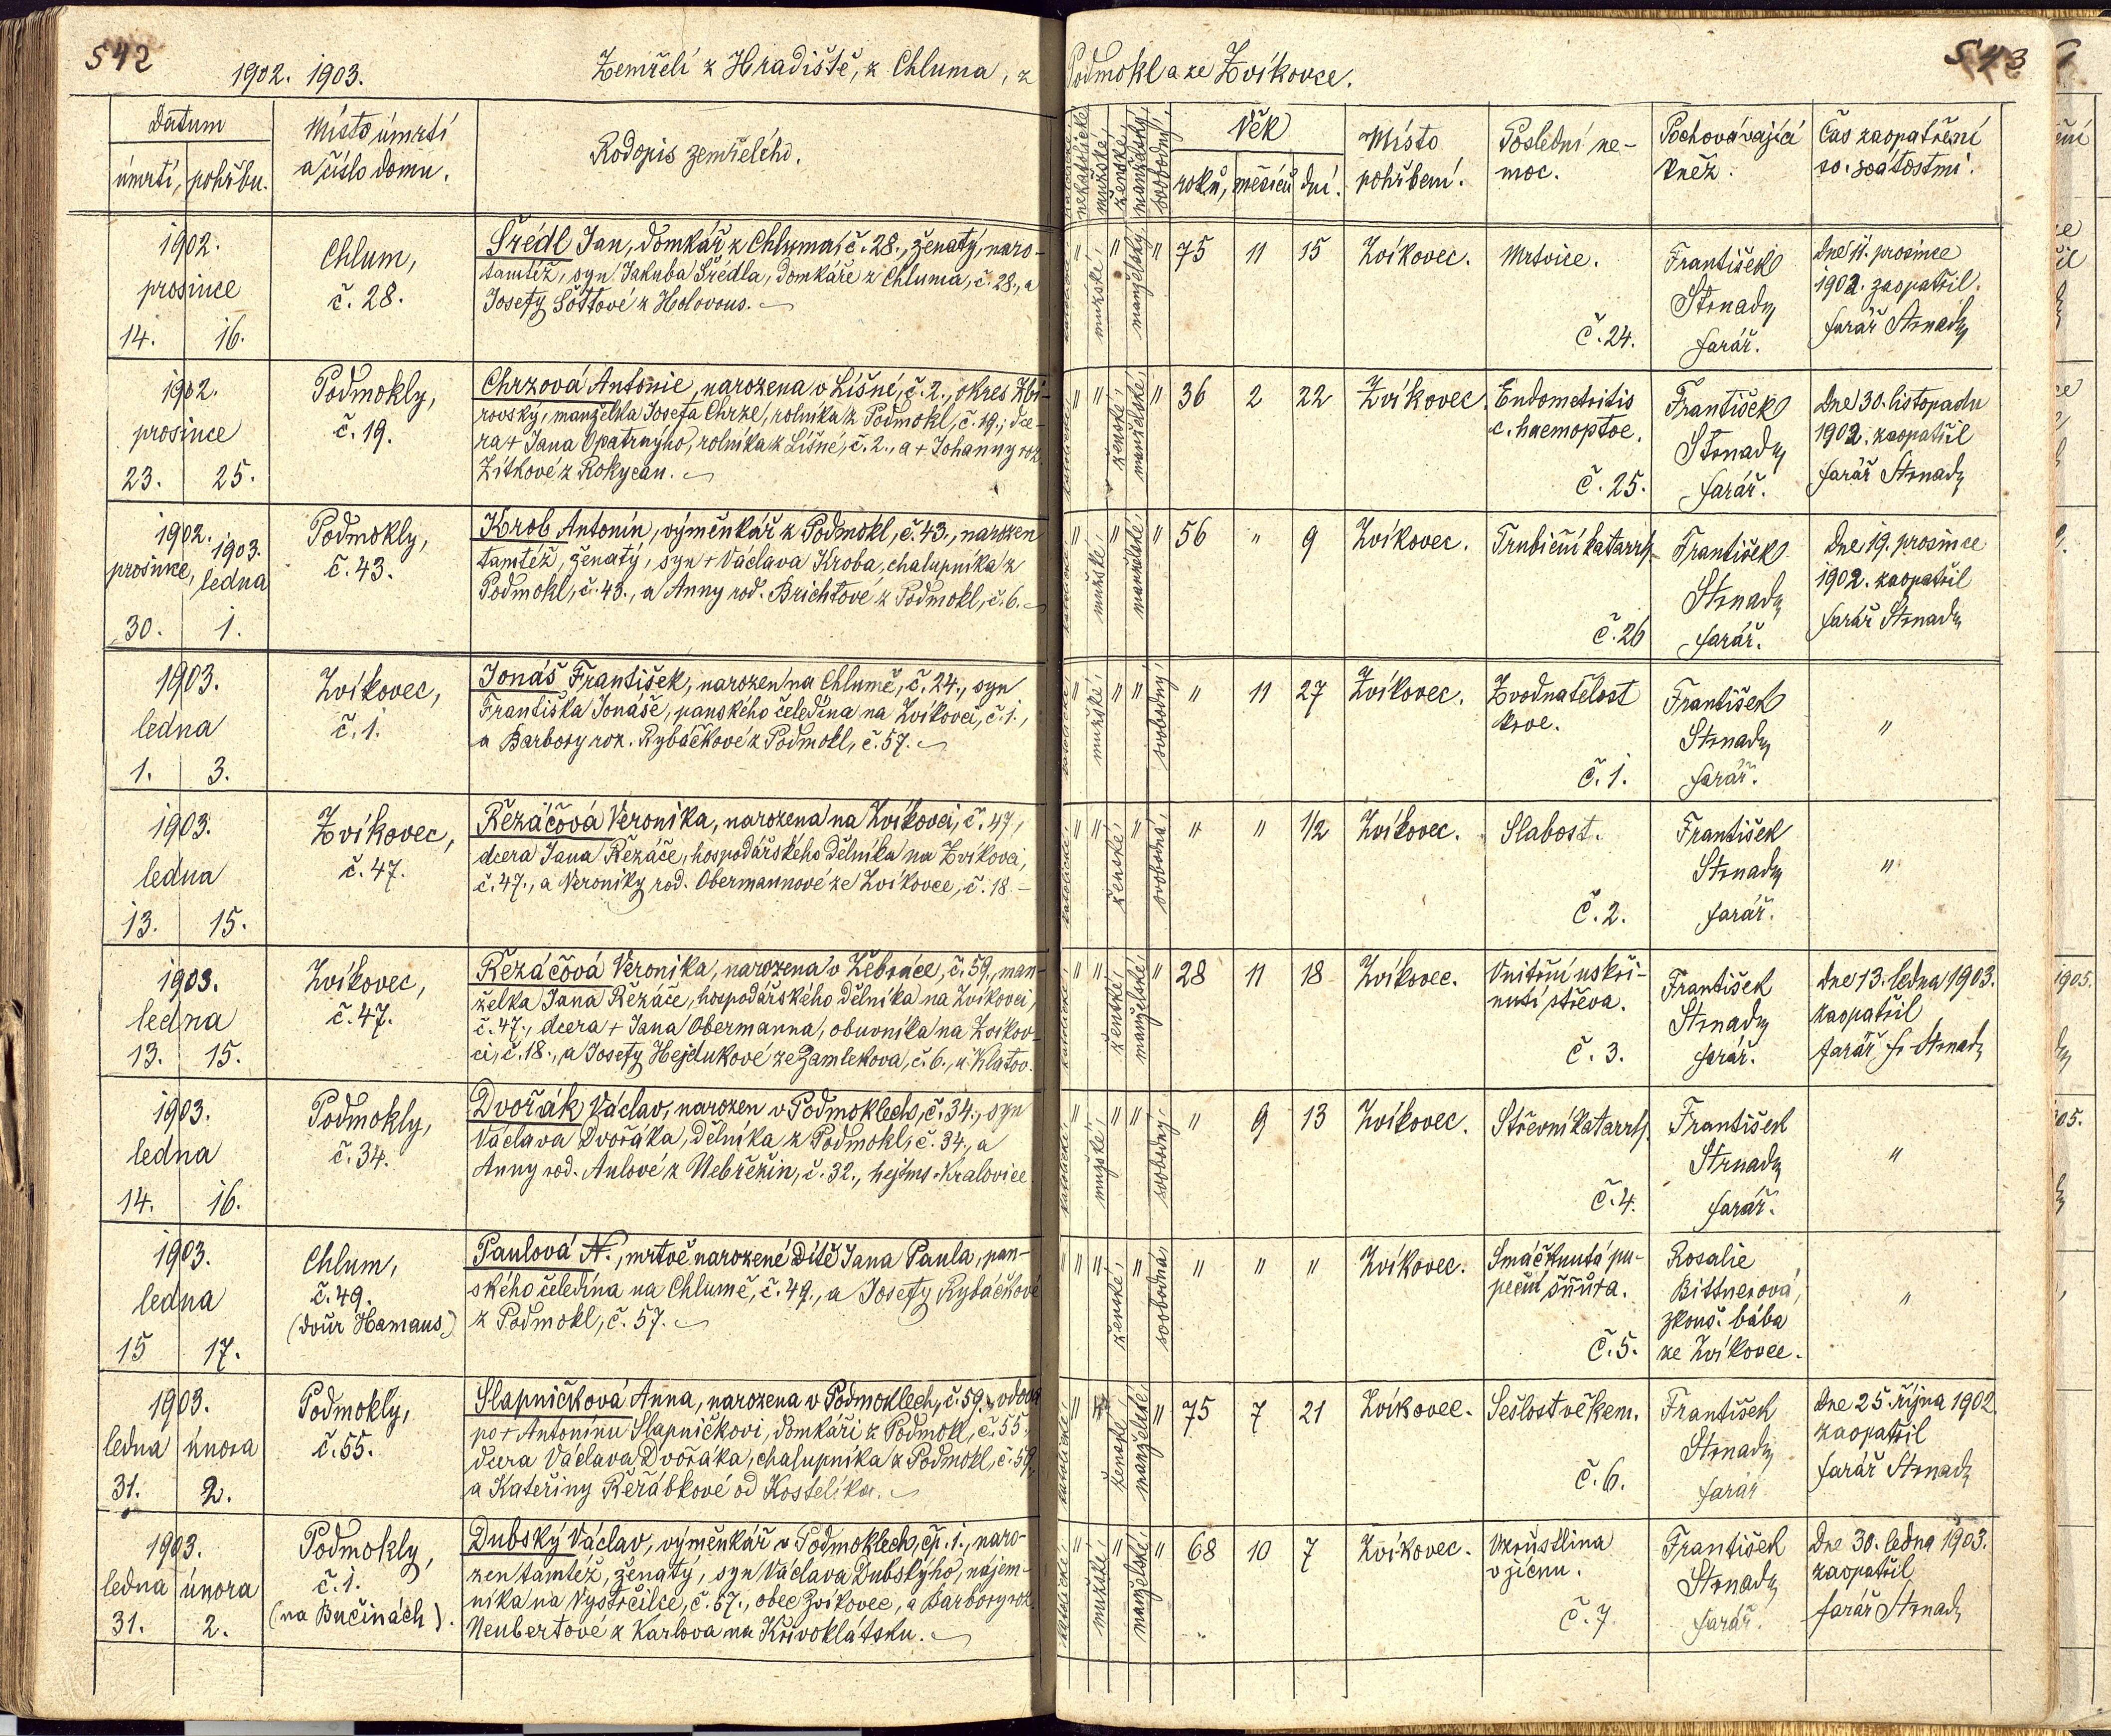 542
1902. 1903.
Zemřelí z Hradiště, z Chluma, z Podmokl a ze Zvíkovce.
543
Datum
úmrtí, pohřbu.
Místo úmrtí
a číslo domu.
Rodopis zemřelého.
nekatolické,
mužské,
ženské,
manželský,
svobodný,
Věk
roků, měsíců dní.
Místo
pohřbení.
Poslední ne-
moc.
Pochovávající
kněz.
Čas zaopatření
sv. svátostmi.
1902.
prosince
14. 16.
Chlum,
č. 28.
Šrédl Jan, domkář z Chluma, č. 28., ženatý, naro-
tamtéž, syn Jakuba Šrédla, domkáře z Chluma, č. 28., a
Josefy Šottové z Holovous.
" mužské, " manželský, "
75 11 15
Zvíkovec.
Mrtvice.
č. 24.
František
Strnady
farář.
dne 11. prosince
1902. zaopatřil.
farář Strnady
1902.
prosince
23. 25.
Podmokly,
č. 19.
Chrzová Antonie, narozena v Líšné, č. 2., okres Zbi-
rovský, manželka Josefa Chrze, rolníka z Podmokl, č. 19., dce-
ra + Jana Opatrnýho, rolníka z Líšné, č. 2., a + Johanny roz.
Zítkové z Rokycan.
" " ženské, manželské, "
36 2 22
Zvíkovec.
Endometritis
c. haemoptoe.
č. 25.
František
Strnady
farář.
dne 30. listopadu
1902. zaopatřil
farář Strnady
1902. 1903.
prosince, ledna
30. 1.
Podmokly,
č. 43.
Krob Antonín, výměnkář z Podmokl, č. 43., narozen
tamtéž, ženatý, syn + Václava Kroba, chalupníka z
Podmokl, č. 43., a Anny rod. Brichtové z Podmokl, č. 6.
" mužské, " manželské, "
56 " 9
Zvíkovec.
Trubiční katarrh.
č. 26
František
Strnady
farář.
dne 19. prosince
1902. zaopatřil
farář Strnady
1903.
ledna
1. 3.
Zvíkovec,
č. 1.
Jonáš František, narozen na Chlumě, č. 24., syn
Františka Jonáše, panského čeledína na Zvíkovci, č. 1.,
a Barbory roz. Rybáčkové z Podmokl, č. 57.
" mužské, " " svobodný,
" 11 27
Zvíkovec.
Zvodnatělost
krve.
č. 1.
František
Strnady
farář.
"
1903.
ledna
13. 15.
Zvíkovec,
č. 47.
Řezáčová Veronika, narozena na Zvíkovci, č. 47,
dcera Jana Řezáče, hospodářského dělníka na Zvíkovci,
č. 47., a Veroniky rod. Obermannové ze Zvíkovce, č. 18.
" " ženské, " svobodná,
" " 1/2
Zvíkovec.
Slabost.
č. 2.
František
Strnady
farář.
"
1903.
ledna
13. 15.
Zvíkovec,
č. 47.
Řezáčová Veronika, narozena v Žebráce, č. 59., man-
želka Jana Řezáče, hospodářského dělníka na Zvíkovci,
č. 47., dcera + Jana Obermanna, obuvníka na Zvíkov-
ci, č. 18., a Josefy Hejdukové ze Zamlekova, č. 6., u Klatov.
" " ženské, manželské, "
28 11 18
Zvíkovec.
Vnitřní uskři-
nutí střeva.
č. 3.
František
Strnady
farář.
dne 13. ledna 1903.
zaopatřil
farář Fr Strnady
1903.
ledna
14. 16.
Podmokly,
č. 34.
Dvořák Václav, narozen v Podmoklech, č. 34., syn
Václava Dvořáka, dělníka z Podmokl, č. 34., a
Anny rod. Aulové z Nebřezin, č. 32., hejtms. Kralovice
" mužské, " " svobodný,
" 9 13
Zvíkovec.
Střevní katarrh.
č. 4.
František
Strnady
farář.
"
1903.
ledna
15 17.
Chlum,
č. 49.
(dvůr Hamaus.)
Paulová N., mrtvě narozené dítě Jana Paula, pan-
ského čeledína na Chlumě, č. 49., a Josefy Rybáčkové
z Podmokl, č. 57.
" " ženské, " svobodna
" " "
Zvíkovec.
Smáčknutá pu-
peční šňůra.
č. 5.
Rosalie
Bittnerová,
zkouš. bába
ze Zvíkovce.
"
1903.
ledna února
31. 2.
Podmokly,
č. 55.
Slapničková Anna, narozena v Podmoklech, č. 59., vdova
po + Antonínu Slapničkovi, domkáři z Podmokl, č. 55.,
dcera Václava Dvořáka, chalupníka z Podmokl, č. 59,
a Kateřiny Řeřábkové od Kostelíka.
" ženské, manželské, "
75 7 21
Zvíkovec.
Sešlost věkem.
č. 6.
František
Strnady
farář
dne 25. října 1902.
zaopatřil
farář Strnady
1903.
ledna února
31. 2.
Podmokly,
č. 1.
(na Bučinách).
Dubský Václav, výměnkář v Podmoklech, čp. 1., naro-
zen tamtéž, ženatý, syn Václava Dubskýho, nájem-
níka na Vystrčilce, č. 57., obec Zvíkovec, a Barbory roz.
Neubertové z Karlova na Křivoklátsku.
" mužské, " manželské, "
68 10 7
Zvíkovec.
Vzrůstlina
v jícnu.
č. 7
František
Strnady
farář.
Dne 30. ledna 1903.
zaopatřil
farář Strnady
1905.